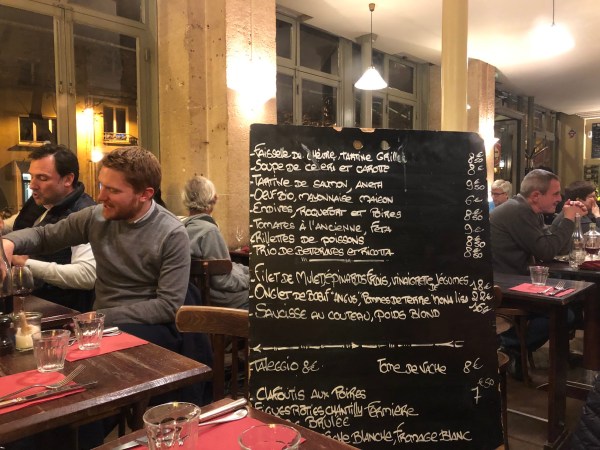 -Faisselle de chèvre, tartine grillée 8€
-Soupe de céleri et carotte 8€
-Tartine de saumon, aneth 9€50
-Oeuf bio, mayonnaise maison 6€
-Endives, roquefort et poires 8€50
-Tomates à l'ancienne, feta 9€
-Rillettes de poissons 8€50
-Trio de betteraves et ricotta 8€50
-Filet de mulet, épinards frais, vinaigrette légumes 18€
-Onglet de boeuf angus, pommes de terre Mona Lisa 22€
-Saucisse au couteau, poids blond
Taleggio 8€ Tome de vache 8€
Clafoutis aux poires 7€50
Chantilly fermière
Brulée
Blanche, Fromage blanc